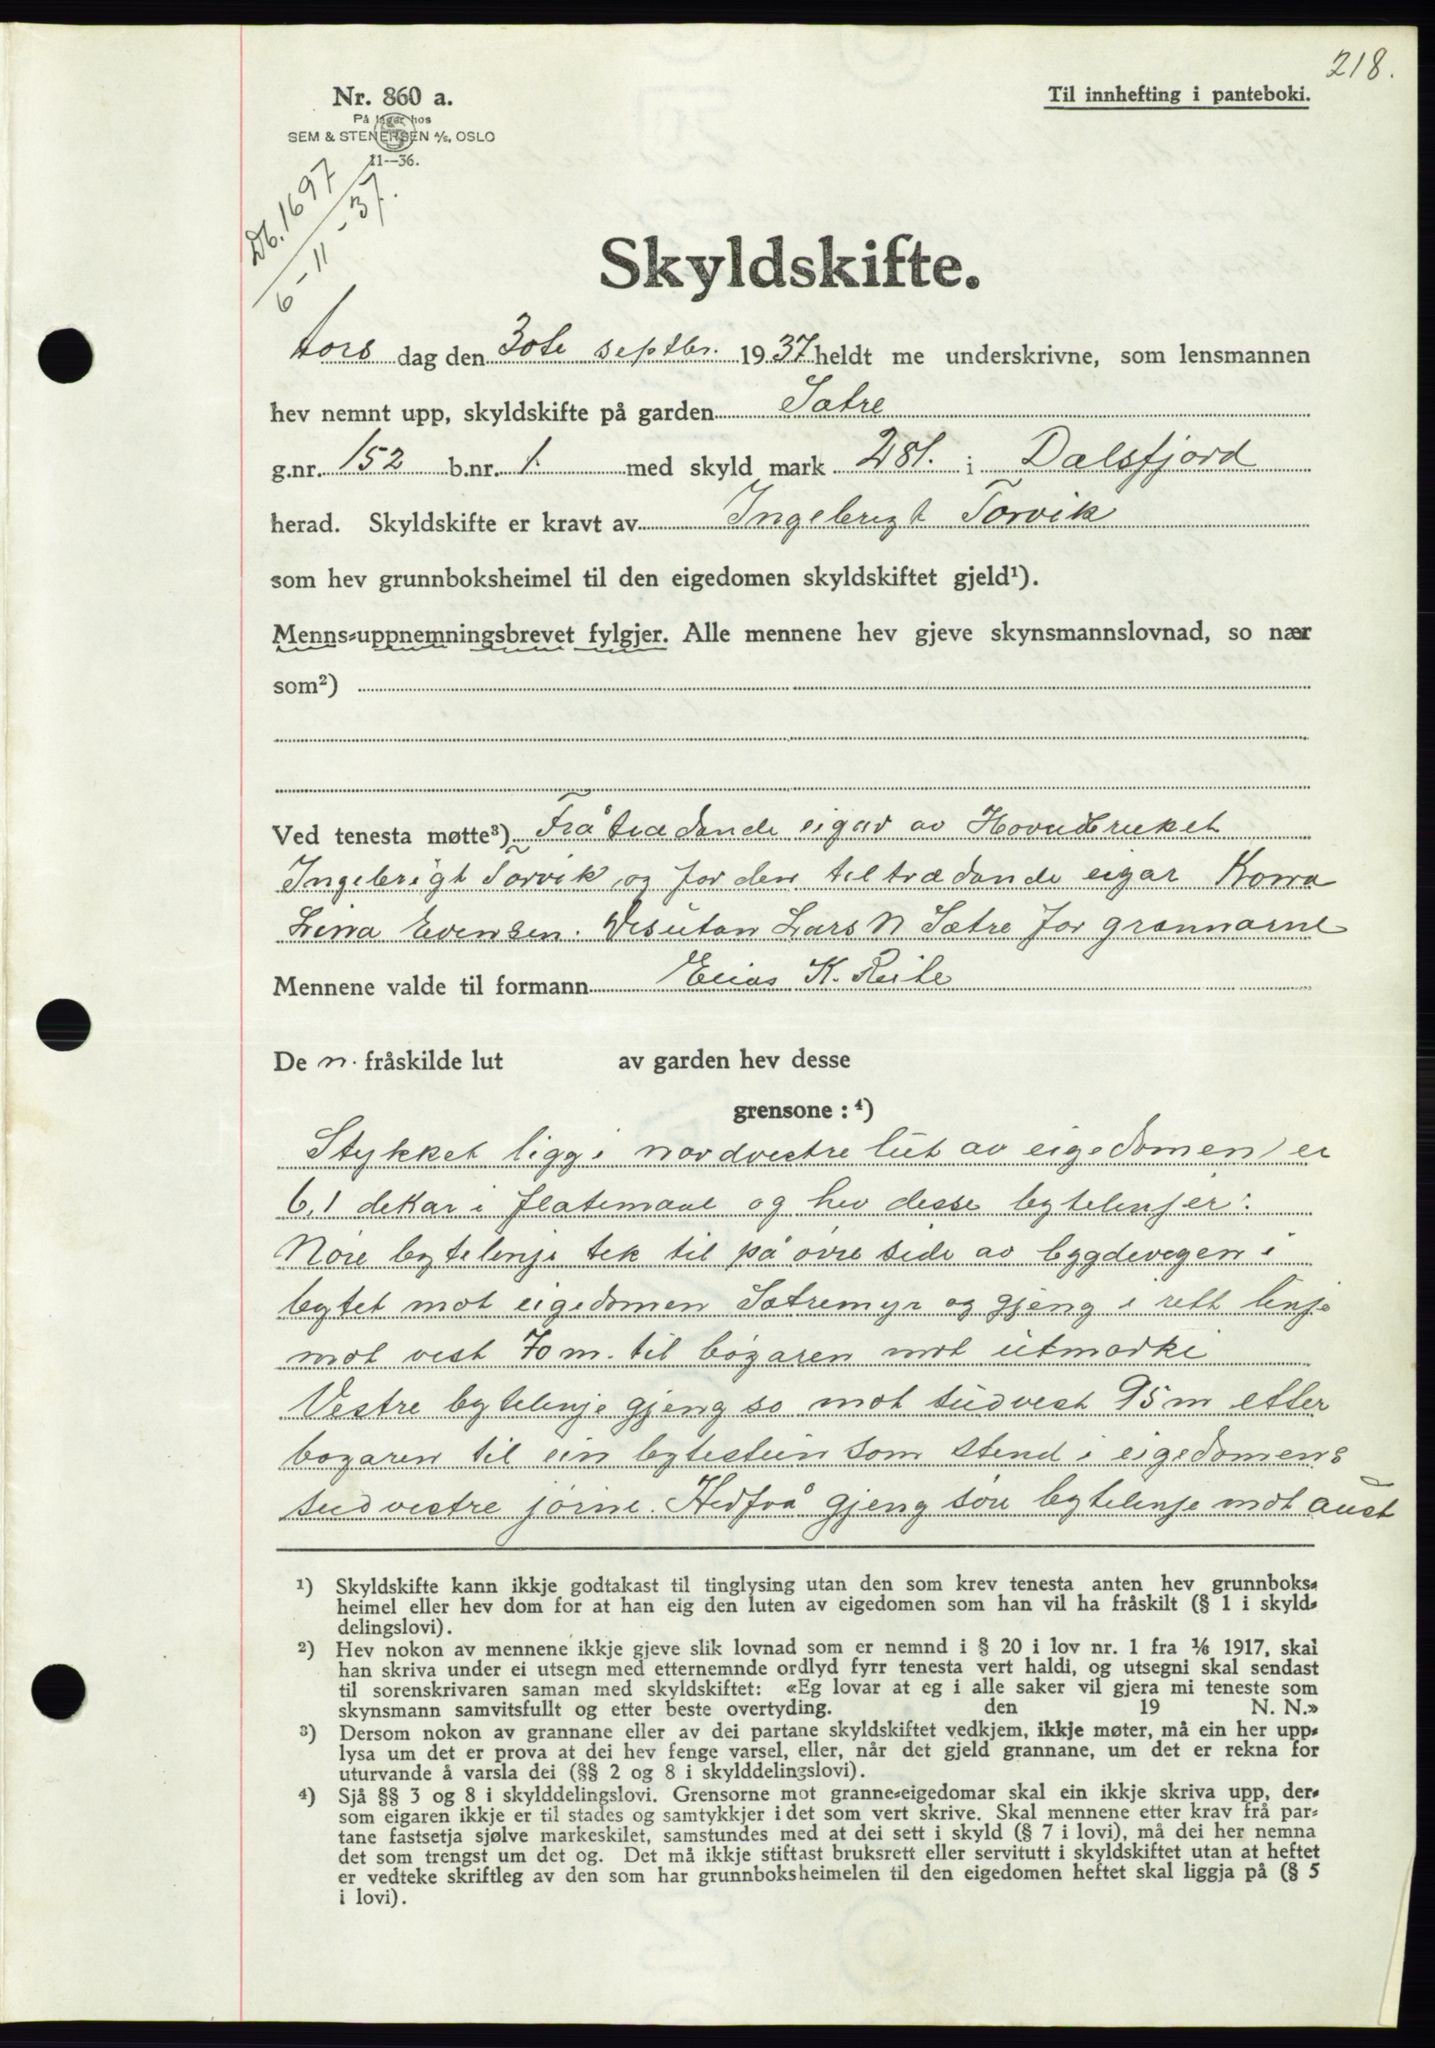 218.
Nr. 860 a.
Til innhefting i panteboki.
På lager hos
SEM & STENERSEN A/S, OSLO
11--36.
Db. 1697
6-11-37.
Skyldskifte.
Tors dag den 30te septbr. 1937 heldt me underskrivne, som lensmannen
hev nemnt upp, skyldskifte på garden Sætre
g.nr. 152 b.nr. 1. med skyld mark 281. i Dalsfjord
herad. Skyldskifte er kravt av Ingebrigt Torvik
som hev grunnboksheimel til den eigedomen skyldskiftet gjeld¹).
Menns-uppnemningsbrevet fylgjer. Alle mennene hev gjeve skynsmannslovnad, so nær
som²)
Ved tenesta møtte³) Fråtrædande eigar av Hovudbruket
Ingebrigt Torvik og for den tiltrædande eigar
Lina Evensen. Desutan Lars N Sætre for grannarne
Mennene valde til formann Elias K. Reite
De n. fråskilde lut av garden hev desse
grensone : ⁴)
Stykket ligg i nordvestre lut av eigedomen, er
6,1 dekar i flatemaal og hev desse bytelinjer:
Nøre bytelinje tek til på øvre side av bygdevegen i
bytet mot eigedomen Sætremyr og gjeng i rett linje
mot vest 70 m. til bøgaren mot utmarki
Vestre bytelinje gjeng so mot sudvest 95 m etter
bøgaren til ein bytestein som stend i eigedomens
sudvestre jørne. Herfrå gjeng søre bytelinje mot aust
¹) Skyldskifte kann ikkje godtakast til tinglysing utan den som krev tenesta anten hev grunnboks-
heimel eller hev dom for at han eig den luten av eigedomen som han vil ha fråskilt (§ 1 i skyld-
delingslovi).
²) Hev nokon av mennene ikkje gjeve slik lovnad som er nemnd i § 20 i lov nr. 1 fra 1/6 1917, skal
han skriva under ei utsegn med etternemnde ordlyd fyrr tenesta vert haldi, og utsegni skal sendast
til sorenskrivaren saman med skyldskiftet: «Eg lovar at eg i alle saker vil gjera mi teneste som
skynsmann samvitsfullt og etter beste overtyding. den 19 N. N.»
³) Dersom nokon av grannane eller av dei partane skyldskiftet vedkjem, ikkje møter, må ein her upp-
lysa um det er prova at dei hev fenge varsel, eller, når det gjeld grannane, um det er rekna for
uturvande å varsla dei (§§ 2 og 8 i skylddelingslovi).
⁴) Sjå §§ 3 og 8 i skylddelingslovi. Grensorne mot granne-eigedomar skal ein ikkje skriva upp, der-
som eigaren ikkje er til stades og samtykkjer i det som vert skrive. Skal mennene etter krav frå par-
tane fastsetja sjølve markeskilet, samstundes med at dei sett i skyld (§ 7 i lovi), må dei her nemna
det som trengst um det og. Det må ikkje stiftast bruksrett eller servitutt i skyldskiftet utan at heftet
er vedteke skriftleg av den som har grunnboksheimelen til den eigedomen heftet skal liggja på (§ 5
i lovi).